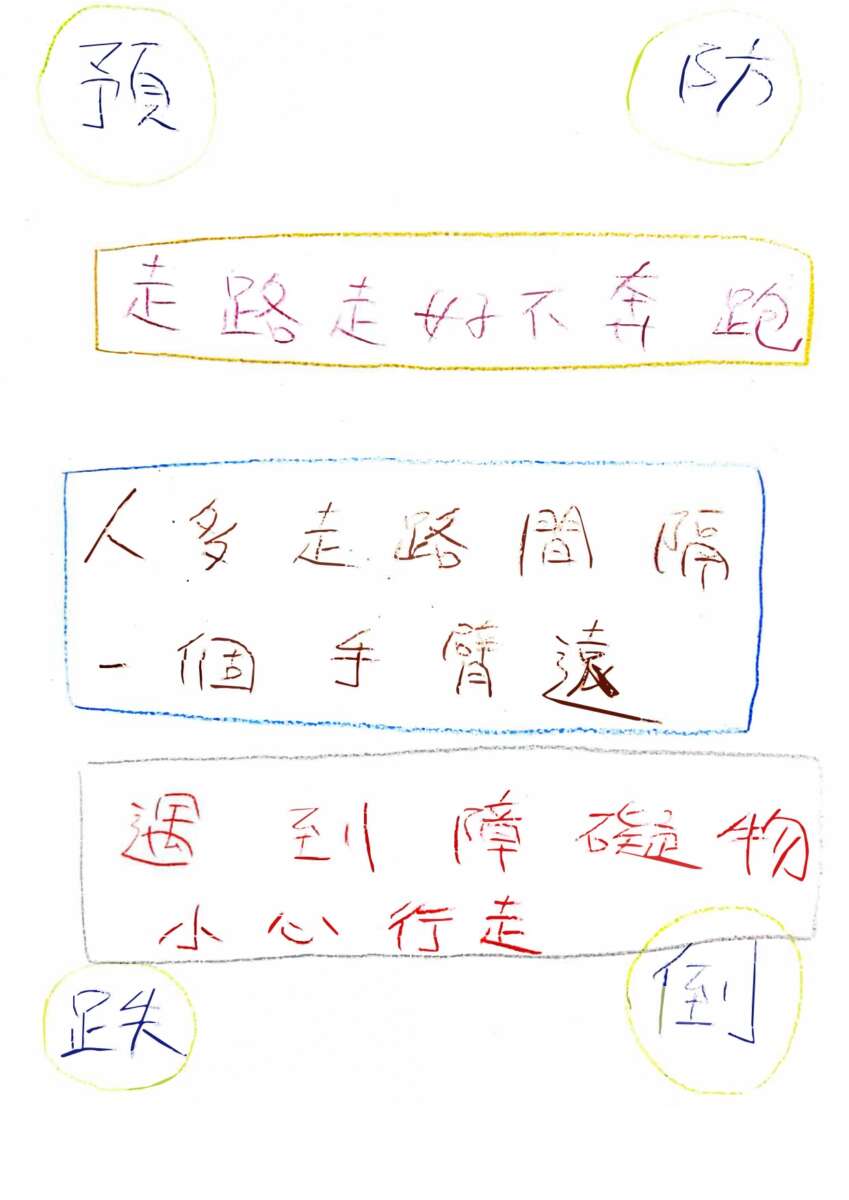 預 防
走路走好不奔跑
人多走路間隔
一個手臂遠
遇到障礙物
小心行走
跌 倒